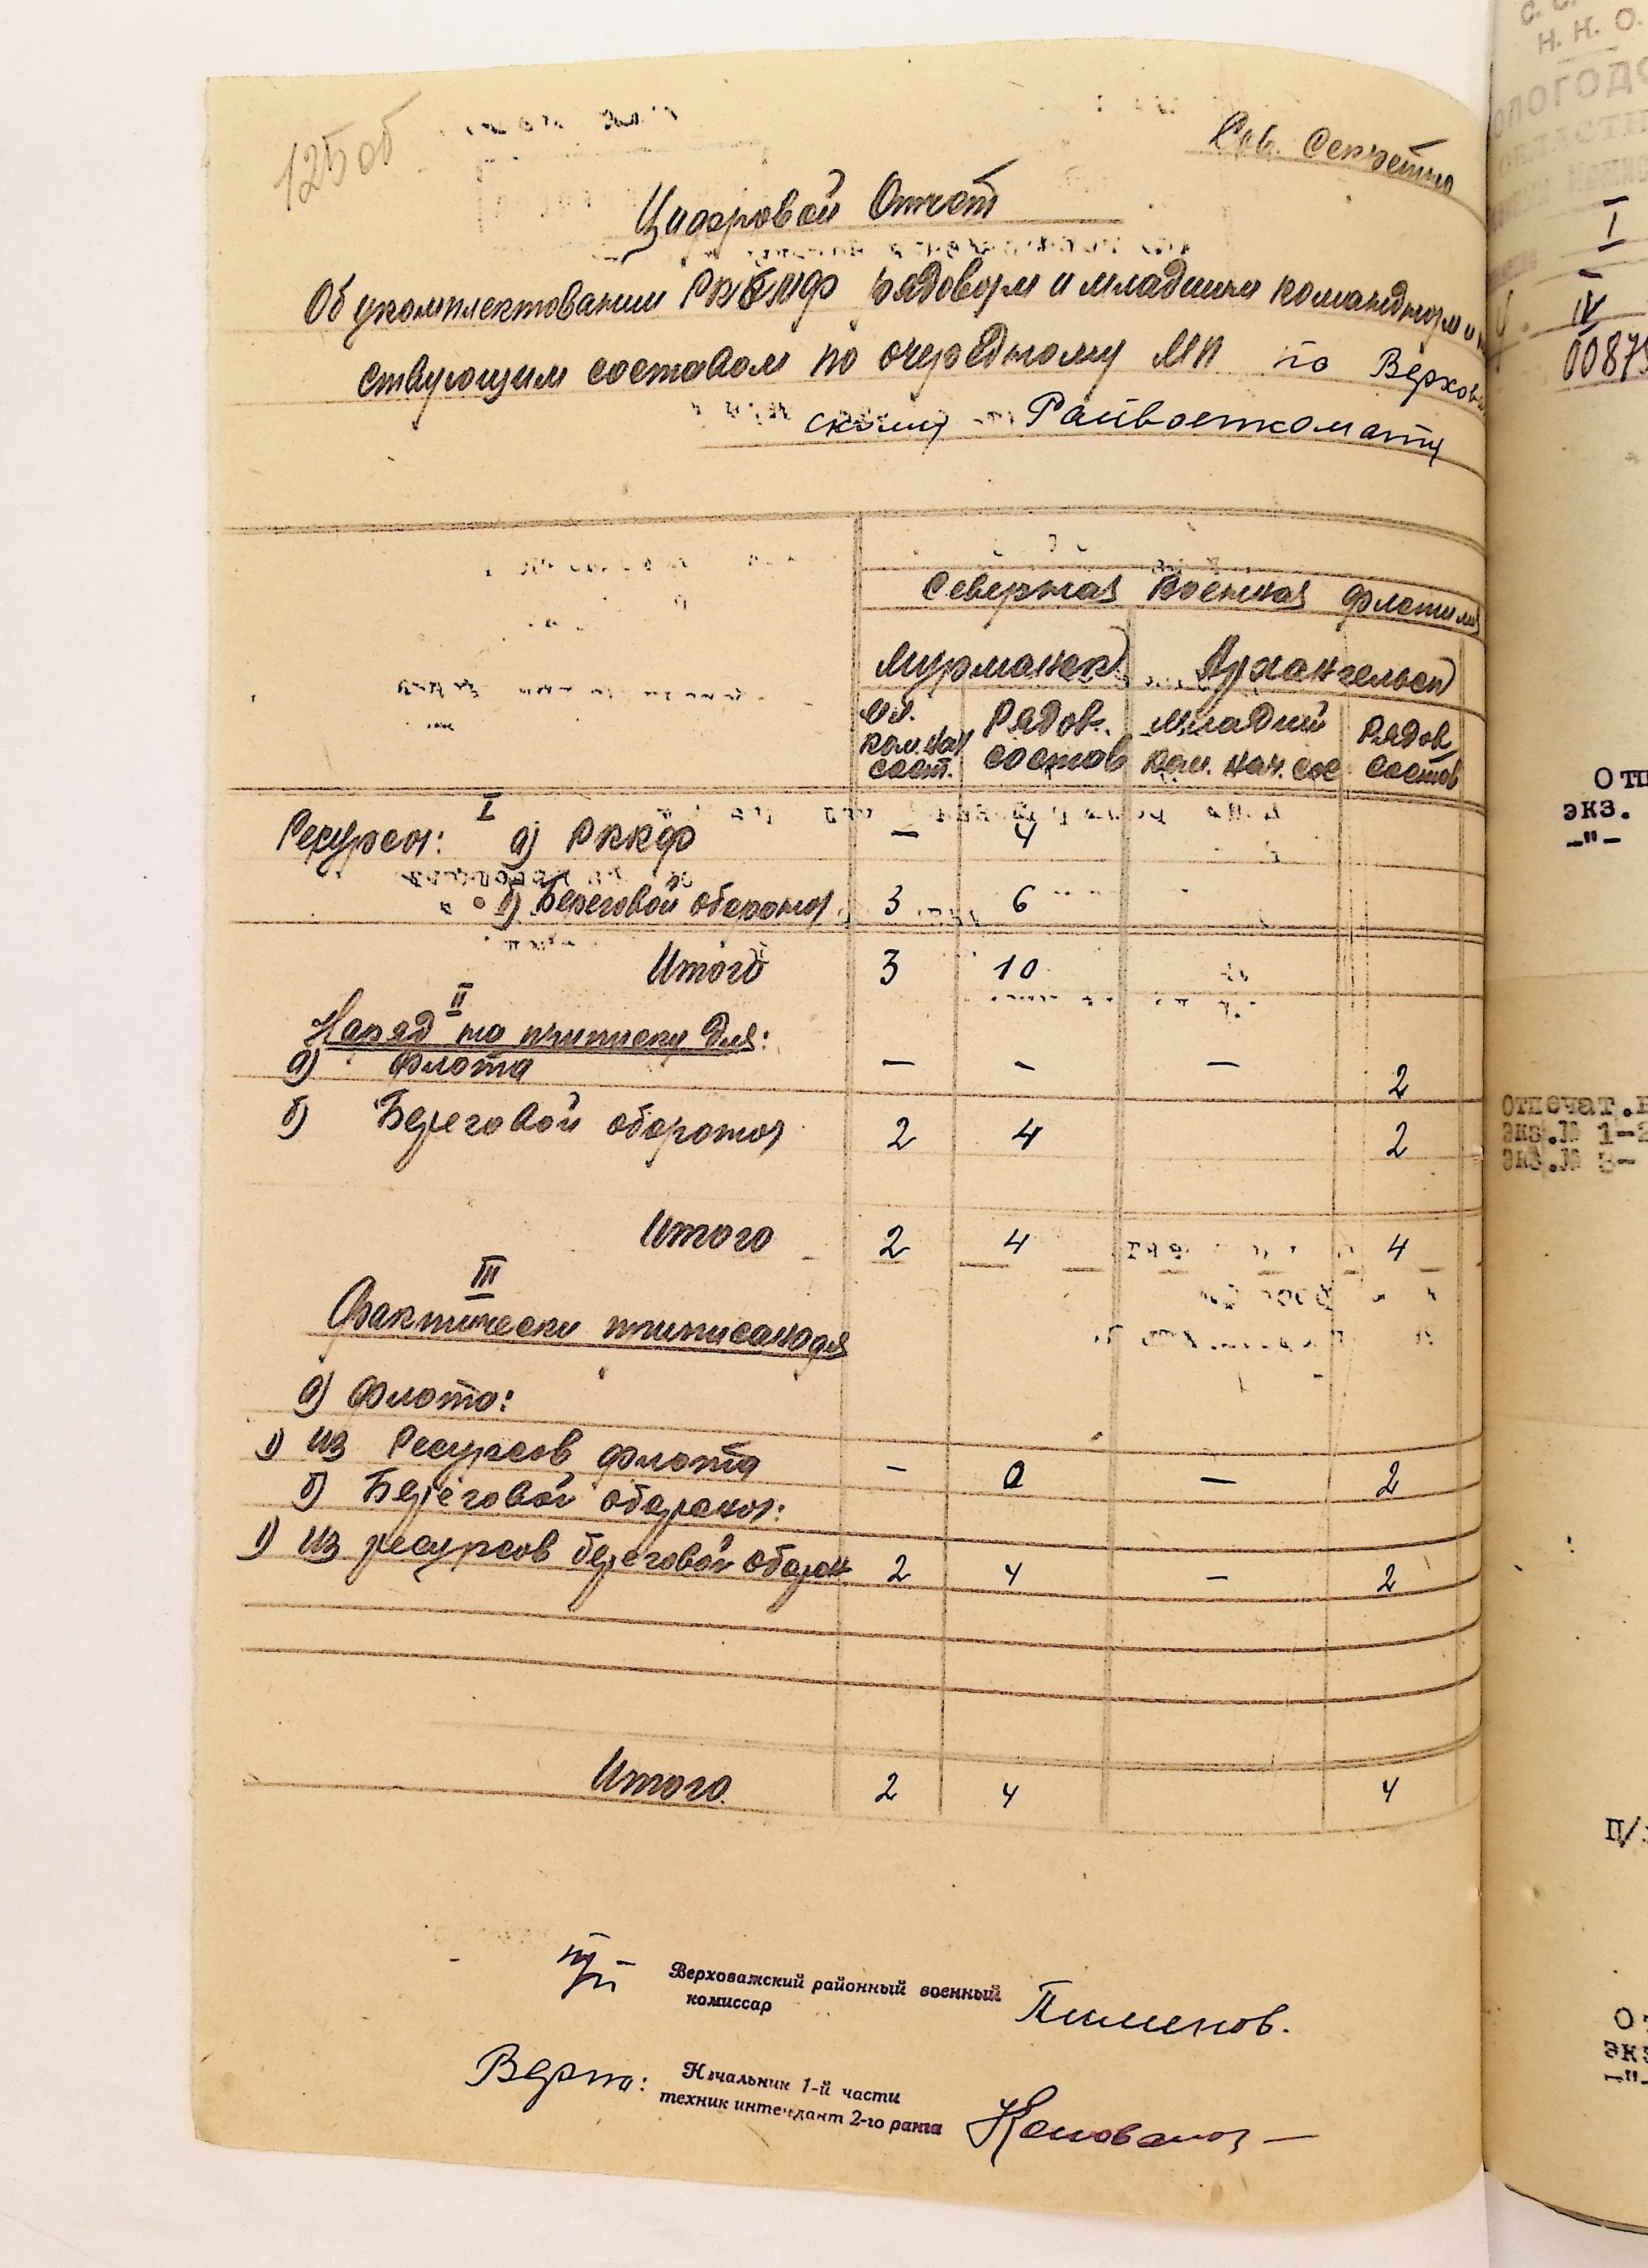 125 об
Сов. Секретно
Цифровой Отчет
Об укомплектовании рядовым и младшим командным и
ствующим составом по очередному МП по Верхов
скому Райвоенкомату
Северная Военная Флотилия
Мурманск Архангельск
Мл. Рядов. Младший Рядов
ком. нач состав ком. нач. сос состав
сост.
I
Ресурсы: а) РККФ — 4
б) Береговой обороны 3 6
Итого 3 10
II
Наряд на приписку для:
а) Флота — — — 2
б) Береговой обороны 2 4 2
Итого 2 4 4
III
Фактически приписано для
а) Флота:
1) из Ресурсов флота — — 2
б) Береговой обороны:
1) из ресурсов береговой оборон 2 4 — 2
Итого. 2 4 4
п/п Верховажский районный военный
комиссар Пименов.
Верно: Начальник 1-й части
техник интендант 2-го ранга
С. С.
Н. К. О.
ОЛОГОДС
I
IV
0087
ОТП
экз.
—"—
Отпечат.в
экз.№ 1-2
экз.№ 3-
П/
От
экз
—"—